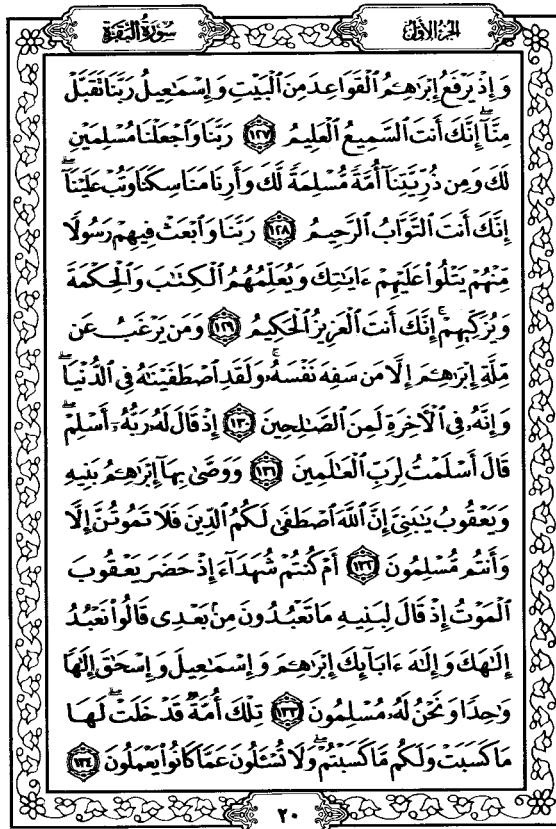 سُورَةُ البَقَرَةِ الجُزْءُ الأَوَّلُ
وَإِذْ يَرْفَعُ إِبْرَٰهِـۧمُ ٱلْقَوَاعِدَ مِنَ ٱلْبَيْتِ وَإِسْمَٰعِيلُ رَبَّنَا تَقَبَّلْ
مِنَّآ ۖ إِنَّكَ أَنتَ ٱلسَّمِيعُ ٱلْعَلِيمُ ١٢٧ رَبَّنَا وَٱجْعَلْنَا مُسْلِمَيْنِ
لَكَ وَمِن ذُرِّيَّتِنَآ أُمَّةً مُّسْلِمَةً لَّكَ وَأَرِنَا مَنَاسِكَنَا وَتُبْ عَلَيْنَآ ۖ
إِنَّكَ أَنتَ ٱلتَّوَّابُ ٱلرَّحِيمُ ١٢٨ رَبَّنَا وَٱبْعَثْ فِيهِمْ رَسُولًا
مِّنْهُمْ يَتْلُوا۟ عَلَيْهِمْ ءَايَٰتِكَ وَيُعَلِّمُهُمُ ٱلْكِتَٰبَ وَٱلْحِكْمَةَ
وَيُزَكِّيهِمْ ۚ إِنَّكَ أَنتَ ٱلْعَزِيزُ ٱلْحَكِيمُ ١٢٩ وَمَن يَرْغَبُ عَن
مِّلَّةِ إِبْرَٰهِـۧمَ إِلَّا مَن سَفِهَ نَفْسَهُۥ ۚ وَلَقَدِ ٱصْطَفَيْنَٰهُ فِى ٱلدُّنْيَا ۖ
وَإِنَّهُۥ فِى ٱلْءَاخِرَةِ لَمِنَ ٱلصَّٰلِحِينَ ١٣٠ إِذْ قَالَ لَهُۥ رَبُّهُۥٓ أَسْلِمْ ۖ
قَالَ أَسْلَمْتُ لِرَبِّ ٱلْعَٰلَمِينَ ١٣١ وَوَصَّىٰ بِهَآ إِبْرَٰهِـۧمُ بَنِيهِ
وَيَعْقُوبُ يَٰبَنِىَّ إِنَّ ٱللَّهَ ٱصْطَفَىٰ لَكُمُ ٱلدِّينَ فَلَا تَمُوتُنَّ إِلَّا
وَأَنتُم مُّسْلِمُونَ ١٣٢ أَمْ كُنتُمْ شُهَدَآءَ إِذْ حَضَرَ يَعْقُوبَ
ٱلْمَوْتُ إِذْ قَالَ لِبَنِيهِ مَا تَعْبُدُونَ مِنۢ بَعْدِى قَالُوا۟ نَعْبُدُ
إِلَٰهَكَ وَإِلَٰهَ ءَابَآئِكَ إِبْرَٰهِـۧمَ وَإِسْمَٰعِيلَ وَإِسْحَٰقَ إِلَٰهًا
وَٰحِدًا وَنَحْنُ لَهُۥ مُسْلِمُونَ ١٣٣ تِلْكَ أُمَّةٌ قَدْ خَلَتْ ۖ لَهَا
مَا كَسَبَتْ وَلَكُم مَّا كَسَبْتُمْ ۖ وَلَا تُسْـَٔلُونَ عَمَّا كَانُوا۟ يَعْمَلُونَ ١٣٤
٢٠